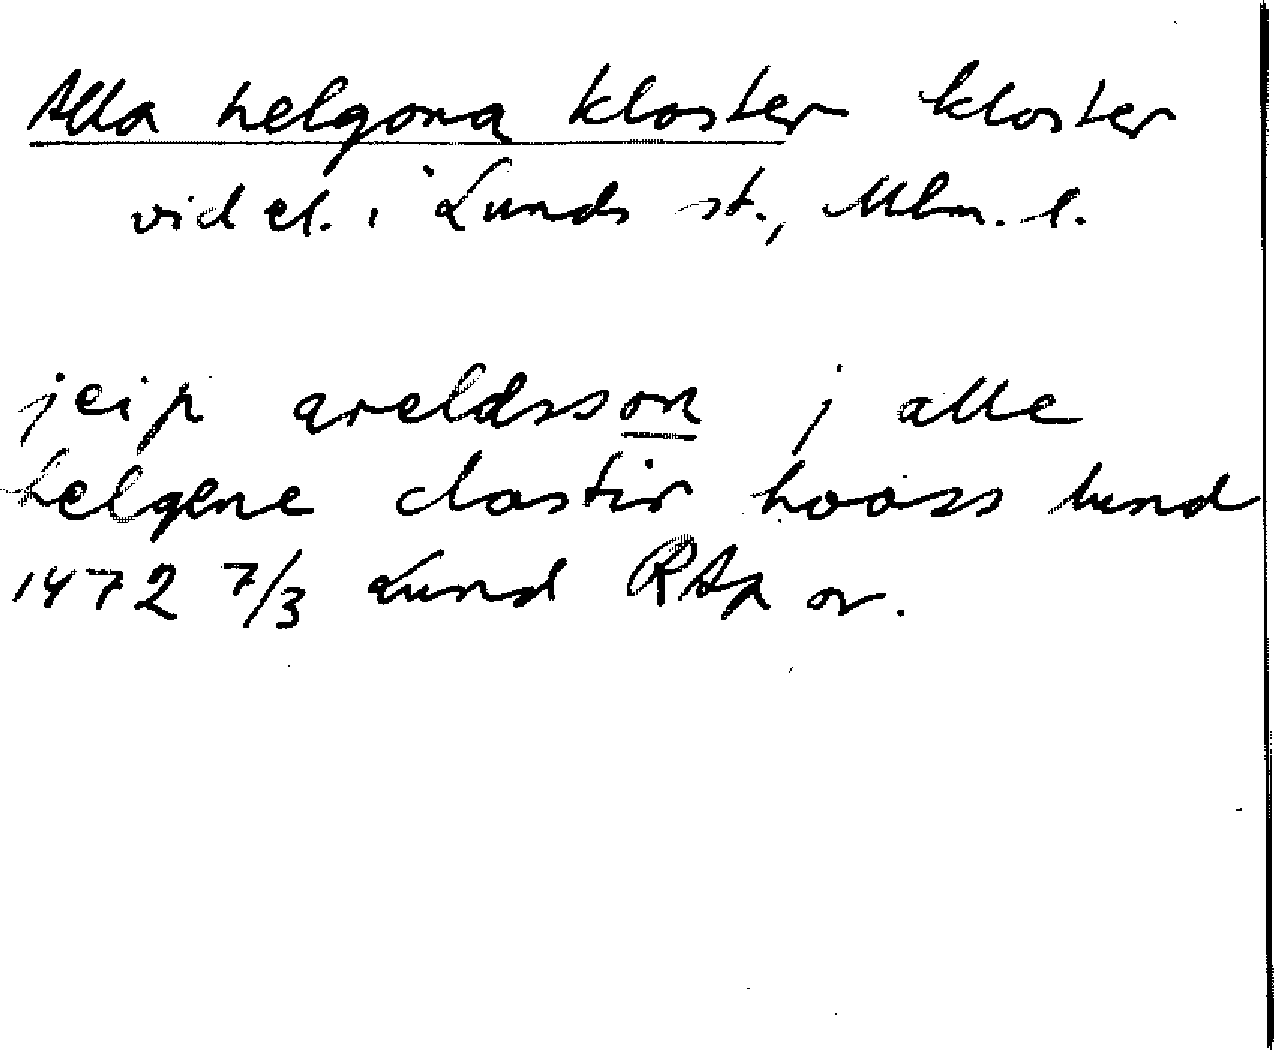 Alla helgona kloster kloster
vid el. i Lunds st., Mlm. l.
jeip areldsson j alle
helgene clostir hooss lund
1472 7/3 Lund RAp or.